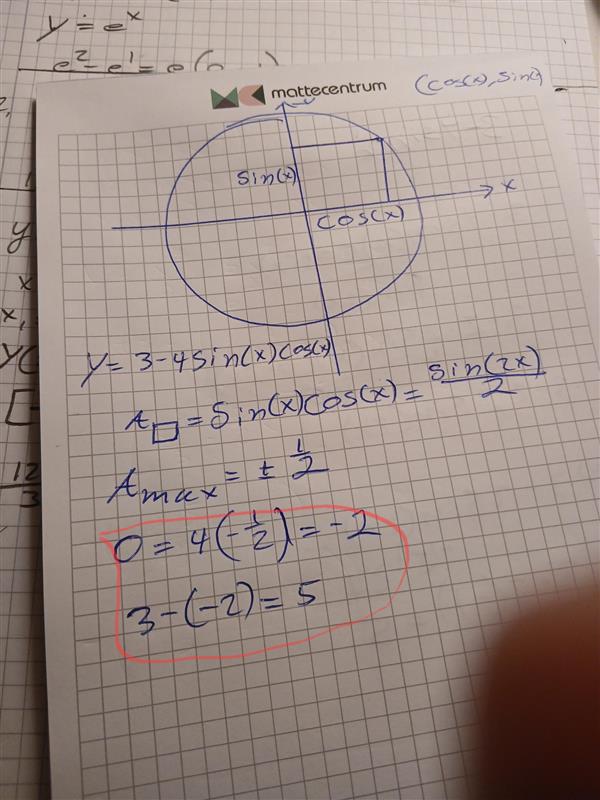 y = eˣ
e² - e¹ = e(
mattecentrum
(cos(x), sin(x)
sin(x)
x
cos(x)
y = 3-4sin(x)cos(x)
A□ = sin(x)cos(x) = sin(2x)/2
Amax = ± 1/2
0 = 4(-1/2) = -2
3-(-2) = 5
y
x
x,
y(
[-
12
3